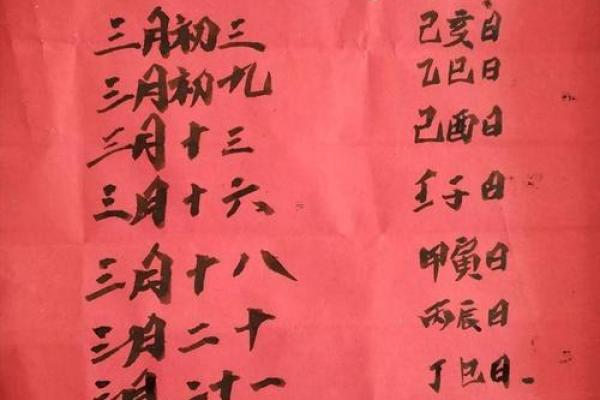 三月初三 己亥日
三月初九 乙巳日
三月十三 己酉日
三月十六 壬子日
三月十八 甲寅日
三月二十 丙辰日
三月二十一 丁巳日